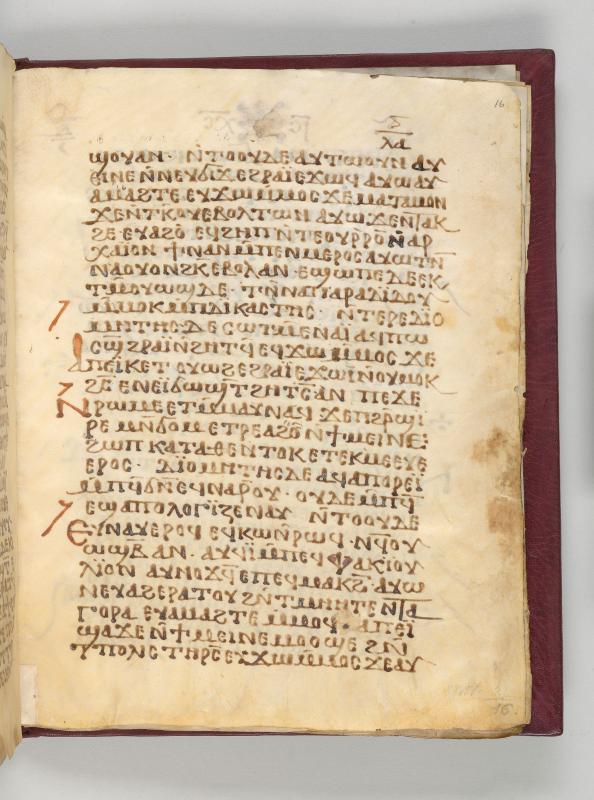 16
ⲗⲁ
ϣⲟⲩⲁⲛ · ⲛ̄ⲧⲟⲟⲩⲇⲉ ⲁⲩⲧⲱⲟⲩⲛ ⲁⲩ
ⲉⲓⲛⲉ ⲛ̄ⲛⲉⲩϭⲓϫ ⲉϩⲣⲁⲓ̈ ⲉϫⲱϥ ⲁⲩⲱ ⲁⲩ
ⲁⲙⲁϩⲧⲉ ⲉⲩϫⲱ ⲙ̄ⲙⲟⲥ ϫⲉ ⲙⲁⲧⲁⲙⲟⲛ
ϫⲉ ⲛ̄ⲧⲕ ⲟⲩⲉⲃⲟⲗ ⲧⲱⲛ ⲁⲩⲱ ϫⲉ
ϩⲉ · ⲉⲩⲁϩⲟ ⲉϥϩⲏⲡ ⲛ̄ⲧⲉ ⲟⲩⲣ̄ⲣⲟ ⲛ̄ⲁⲣ
ⲭⲁⲓⲟⲛ ϯⲛⲁⲛ ⲙ̄ⲡⲉⲛⲙⲉⲣⲟⲥ ⲁⲩⲱ ⲧⲛ̄
ⲛⲁⲟⲩⲟⲛϩⲕ ⲉⲃⲟⲗ ⲁⲛ · ⲉϣⲱⲡⲉ ⲇⲉ ⲉⲕ
ⲧⲙ̄ⲟⲩⲱϣ ⲇⲉ · ⲧⲛ̄ⲛⲁⲡⲁⲣⲁⲇⲓⲇⲟⲩ
ⲙ̄ⲙⲟⲕ ⲙ̄ⲡⲇⲓⲕⲁⲥⲧⲏⲥ · ⲛ̄ⲧⲉⲣⲉⲇⲓⲟ
ⲙⲏⲧⲏⲥ ⲇⲉ ⲥⲱⲧⲙ̄ ⲉⲛⲁⲓ̈ ⲁϥⲡⲱ
ϣⲥ̄ ϩⲣⲁⲓ̈ ⲛ̄ϩⲏⲧϥ̄ ⲉϥϫⲱ ⲙ̄ⲙⲟⲥ ϫⲉ
ⲁⲡⲉⲓⲕⲉⲧ ⲟⲩⲱϩ ⲉϩⲣⲁⲓ̈ ⲉϫⲱⲓ̈ ⲛ̄ⲟⲩⲙⲟⲕ
ϩⲥ̄ ⲉⲛⲉⲓ̈ϭⲱϣⲧ ϩⲏⲧϥ̄ ⲁⲛ ⲡⲉϫⲉ
ⲛ̄ⲣⲱⲙⲉ ⲉⲧⲙ̄ⲙⲁⲩ ⲛⲁϥ ϫⲉ ⲡϩⲣ̄ϣⲓ
ⲣⲉ ⲙⲛ̄ϭⲟⲙ ⲉⲧⲣⲉ ⲁϩⲟ ⲛ̄ϯⲙⲉⲓⲛⲉ
ϩⲱⲡ ⲕⲁⲧⲁ ⲑⲉ ⲛ̄ⲧⲟⲕ ⲉⲧⲉⲕⲙⲉⲉⲩⲉ
ⲉⲣⲟⲥ · ⲇⲓⲟⲙⲏⲧⲏⲥ ⲇⲉ ⲁϥⲁⲡⲟⲣⲉⲓ̈
ⲙ̄ⲡϥ̄ϭⲛ̄ ⲉϥⲛⲁⲣ̄ⲟⲩ · ⲟⲩⲇⲉ ⲙ̄ⲡϥ̄
ⲉϣⲁⲡⲟⲗⲟⲅⲓⲍⲉ ⲛⲁⲩ ⲛ̄ⲧⲟⲟⲩ ⲇⲉ
ⲉⲩⲛⲁⲩ ⲉⲣⲟϥ ⲉϥⲕⲱ ⲛ̄ⲣⲱϥ · ⲛϥ̄ⲟⲩ
ⲱϣⲃ̄ ⲁⲛ · ⲁⲩϥⲓ ⲙ̄ⲡⲉϥⲫⲁⲕⲓⲟⲩ
ⲗⲓⲟⲛ ⲁⲩⲛⲟϫϥ̄ ⲉⲡⲉϥⲙⲁⲕϩ̄ · ⲁⲩⲱ
ⲛⲉⲩⲁϩⲉⲣⲁⲧⲟⲩ ϩⲛ̄ ⲧⲙⲏⲧⲉ ⲛ̄ⲧⲁ
ⲅⲟⲣⲁ ⲉⲩⲁⲙⲁϩⲧⲉ ⲙ̄ⲙⲟϥ · ⲁⲡⲉⲓ̈
ϣⲁϫⲉ ⲛ̄ϯⲙⲉⲓⲛⲉ ⲙⲟⲟϣⲉ ϩⲛ̄
ⲧⲡⲟⲗⲓⲥ ⲧⲏⲣⲥ̄ ⲉⲩϫⲱ ⲙ̄ⲙⲟⲥ ϫⲉ ⲁⲩ
16.